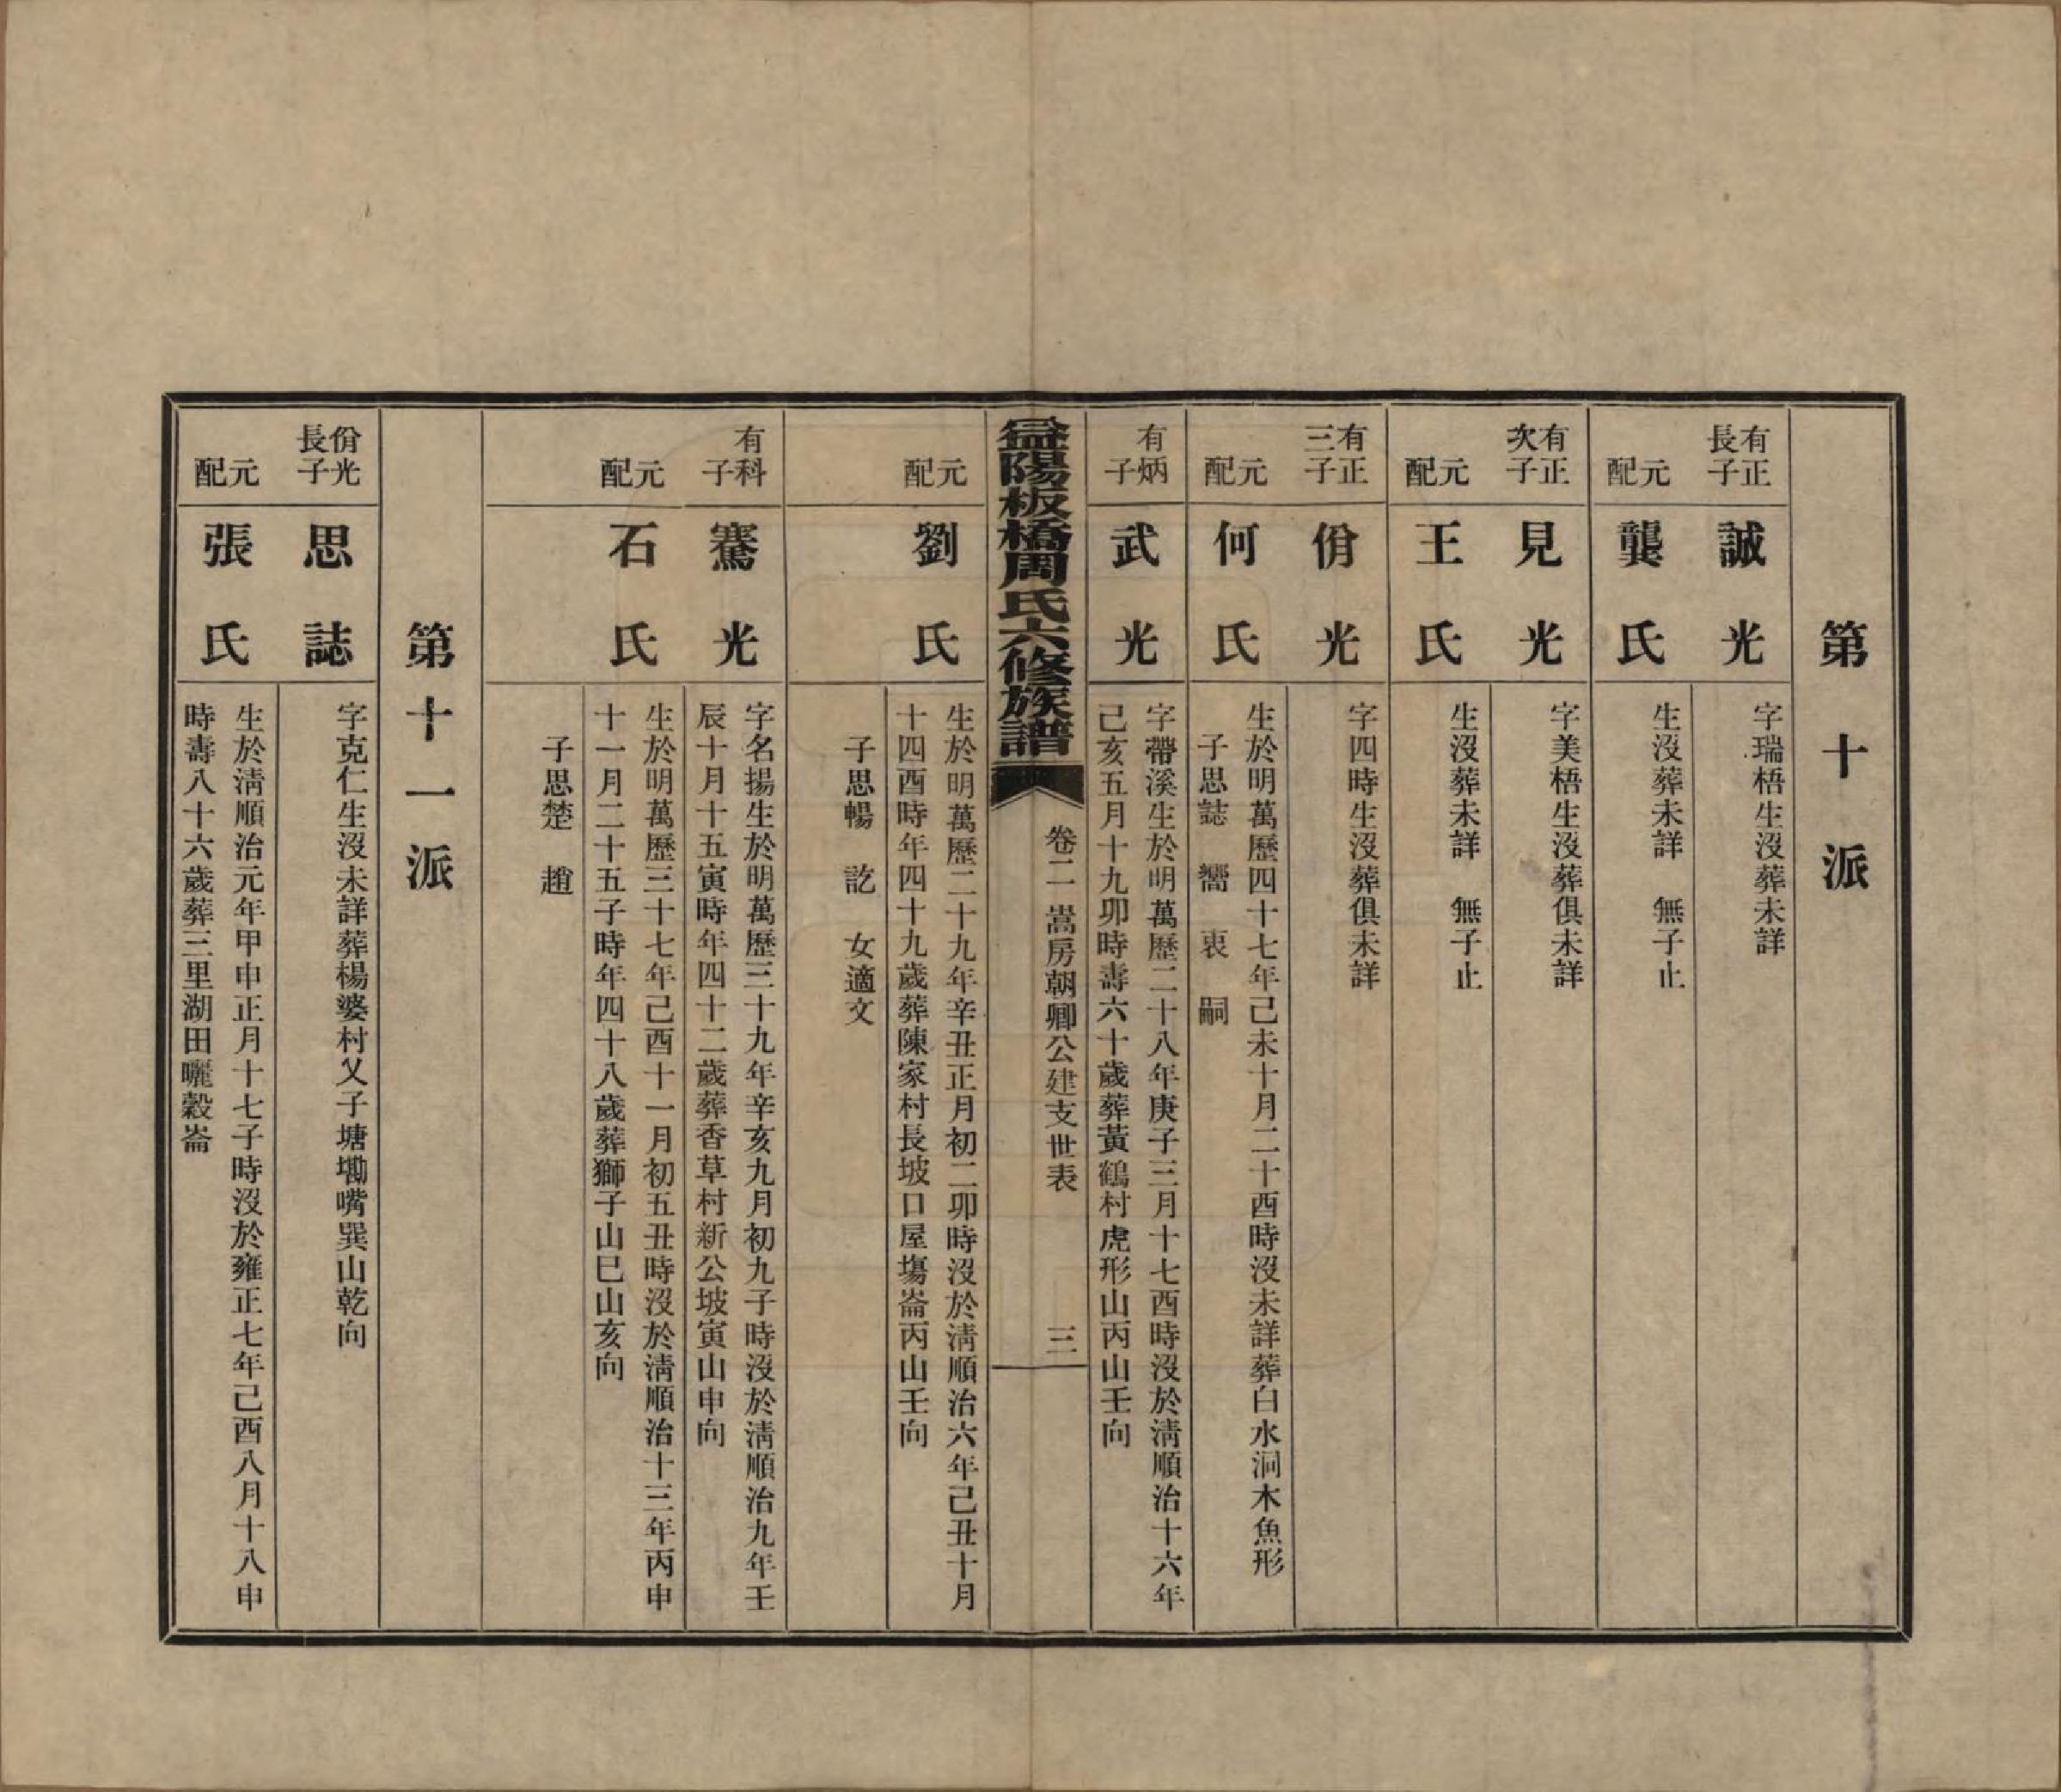 第十派
有正長子
誠光
字瑞梧生沒葬未詳
元配
龔氏
生沒葬未詳　無子止
有正次子
見光
字美梧生沒葬俱未詳
元配
王氏
生沒葬未詳　無子止
有正三子
佾光
字四時生沒葬俱未詳
元配
何氏
生於明萬歷四十七年己未十月二十酉時沒未詳葬白水洞木魚形
子思誌　嚮　衷　嗣
有炳子
武光
字帶溪生於明萬歷二十八年庚子三月十七酉時沒於淸順治十六年
己亥五月十九卯時壽六十歲葬黃鶴村虎形山丙山壬向
益陽板橋周氏六修族譜
卷二　嵩房朝卿公建支世表
三
元配
劉氏
生於明萬歷二十九年辛丑正月初二卯時沒於淸順治六年己丑十月
十四酉時年四十九歲葬陳家村長坡口屋塲崙丙山壬向
子思暢　訖　女適文
有科子
騫光
字名揚生於明萬歷三十九年辛亥九月初九子時沒於淸順治九年壬
辰十月十五寅時年四十二歲葬香草村新公坡寅山申向
元配
石氏
生於明萬歷三十七年己酉十一月初五丑時沒於淸順治十三年丙申
十一月二十五子時年四十八歲葬獅子山巳山亥向
子思楚　趙
第十一派
佾光長子
思誌
字克仁生沒未詳葬楊婆村乂子塘墈嘴巽山乾向
元配
張氏
生於淸順治元年甲申正月十七子時沒於雍正七年己酉八月十八申
時壽八十六歲葬三里湖田曬穀崙